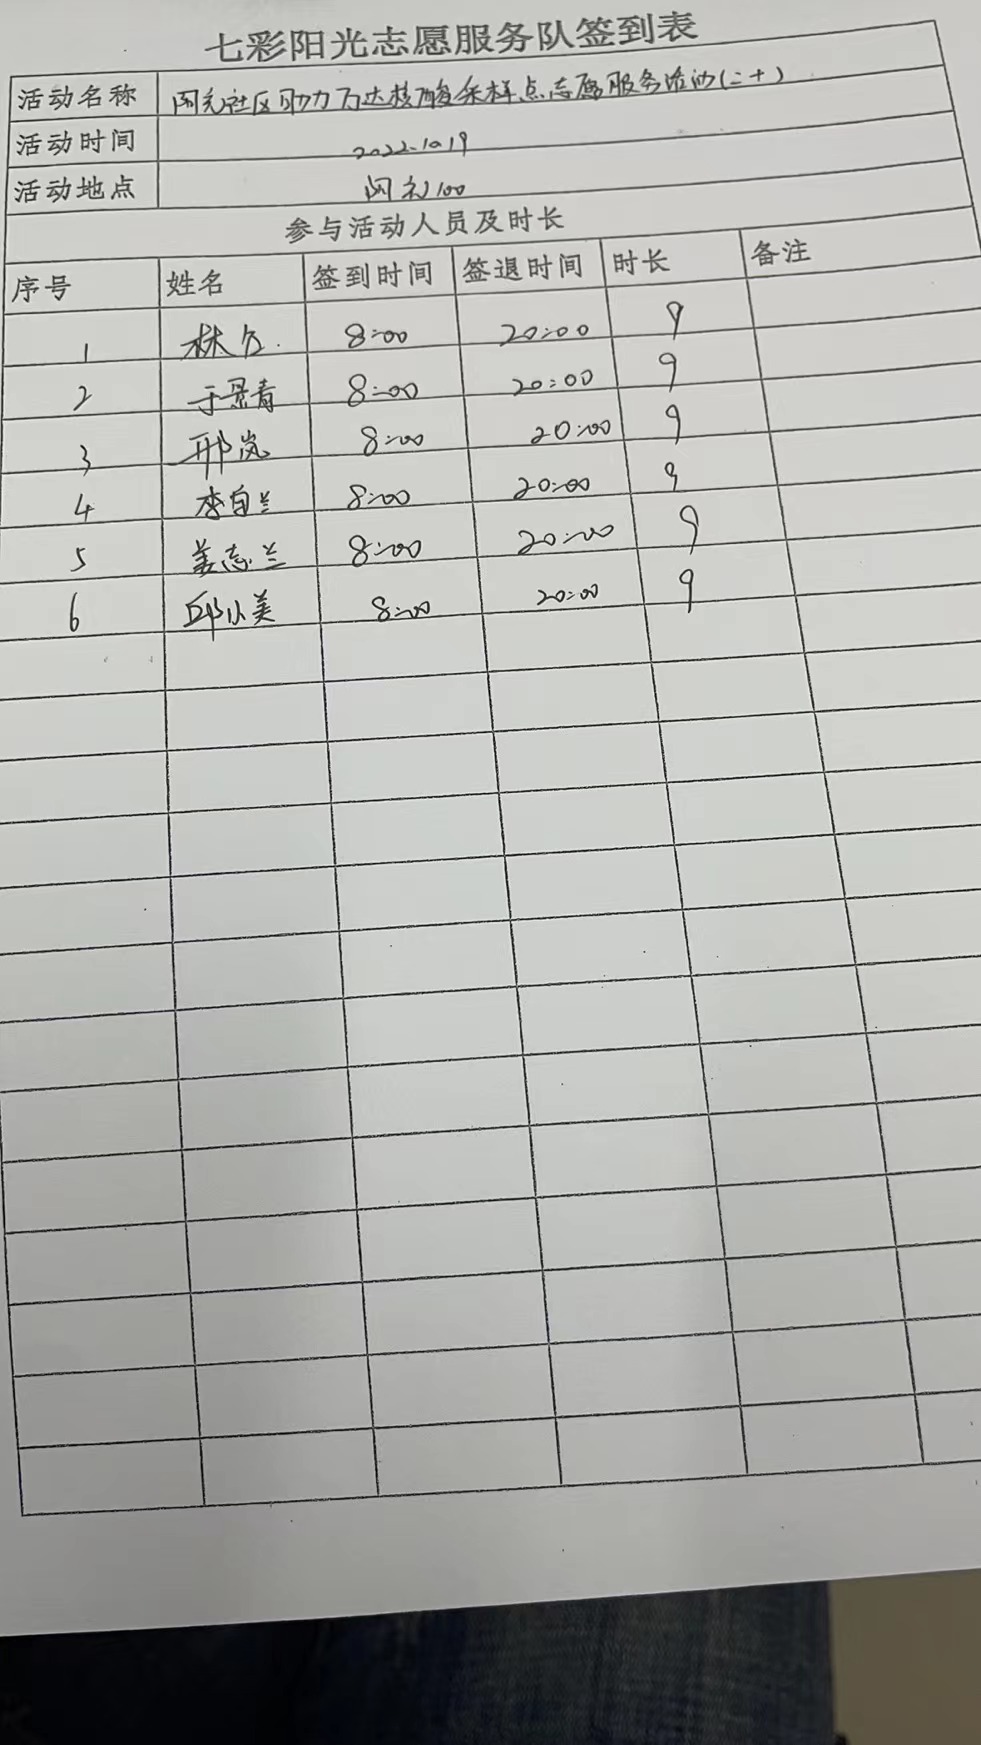 七彩阳光志愿服务队签到表
活动名称 社区助力万达核酸采样点志愿服务活动(二十)
活动时间 2022.10.19
活动地点 100
参与活动人员及时长
序号 姓名 签到时间 签退时间 时长 备注
1 林 8:00 20:00 9
2 于景青 8:00 20:00 9
3 邢岚 8:00 20:00 9
4 李自兰 8:00 20:00 9
5 姜志兰 8:00 20:00 9
6 邱小美 8:00 20:00 9